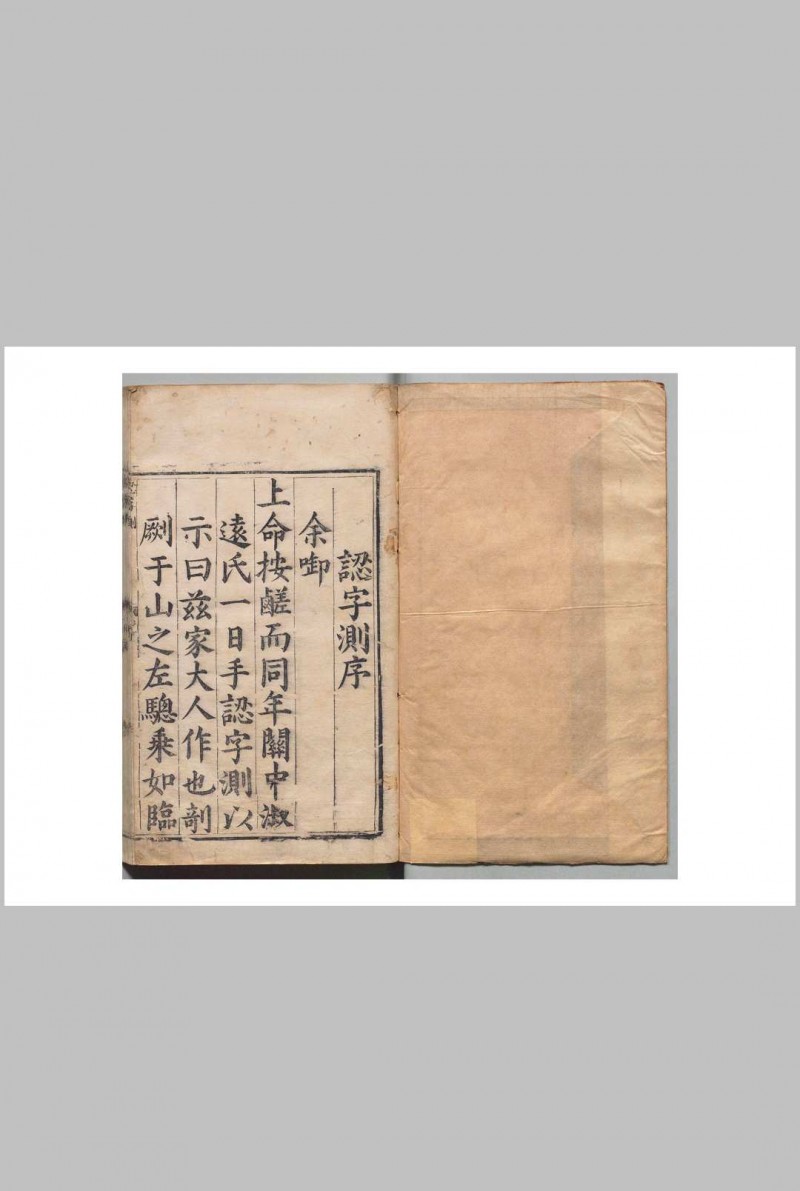 認字測序
余啣
上命按鹺而同年關中淑
遠氏一日手認字測以
示曰茲家大人作也剖
劂于山之左驄乘如臨